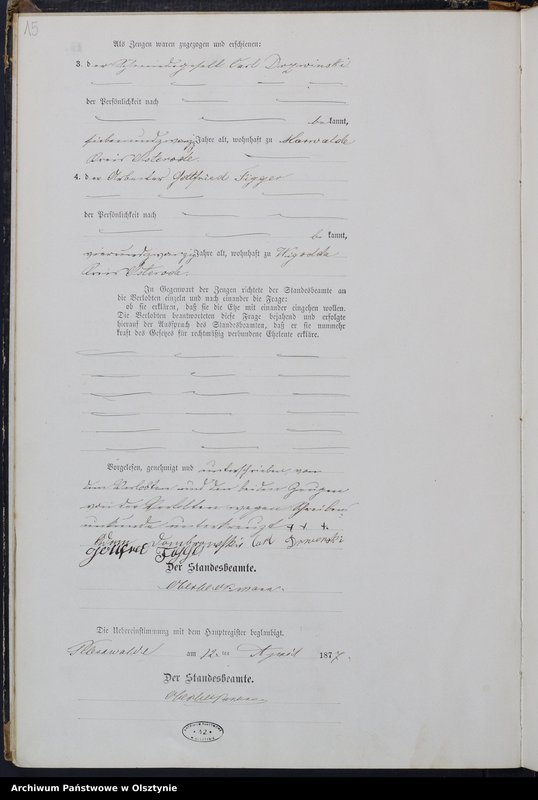 15
Als Zeugen waren zugezogen und erschienen:
3. der Schmiedegesell Carl
der Persönlichkeit nach
be kannt,
siebenundzwanzig Jahre alt, wohnhaft zu Marwalde
Kreis Osterode.
4. der Arbeiter Gottfried
der Persönlichkeit nach
be kannt,
vierundzwanzig Jahre alt, wohnhaft zu Wigodda
Kreis Osterode.
In Gegenwart der Zeugen richtete der Standesbeamte an
die Verlobten einzeln und nach einander die Frage:
ob sie erklären, daß sie die Ehe mit einander eingehen wollen.
Die Verlobten beantworteten diese Frage bejahend und erfolgte
hierauf der Ausspruch des Standesbeamten, daß er sie nunmehr
kraft des Gesetzes für rechtmäßig verbundene Eheleute erkläre.
Vorgelesen, genehmigt und unterschrieben von
dem Verlobten und den beiden Zeugen
von der Verlobten wegen Schreibens
unkunde unterkreuzt + + +.
Dombrowski Carl
Der Standesbeamte.
Die Uebereinstimmung mit dem Hauptregister beglaubigt.
Marwalde am 12. ten April 1877.
Der Standesbeamte.
Archiwum Państwowe w Olsztynie